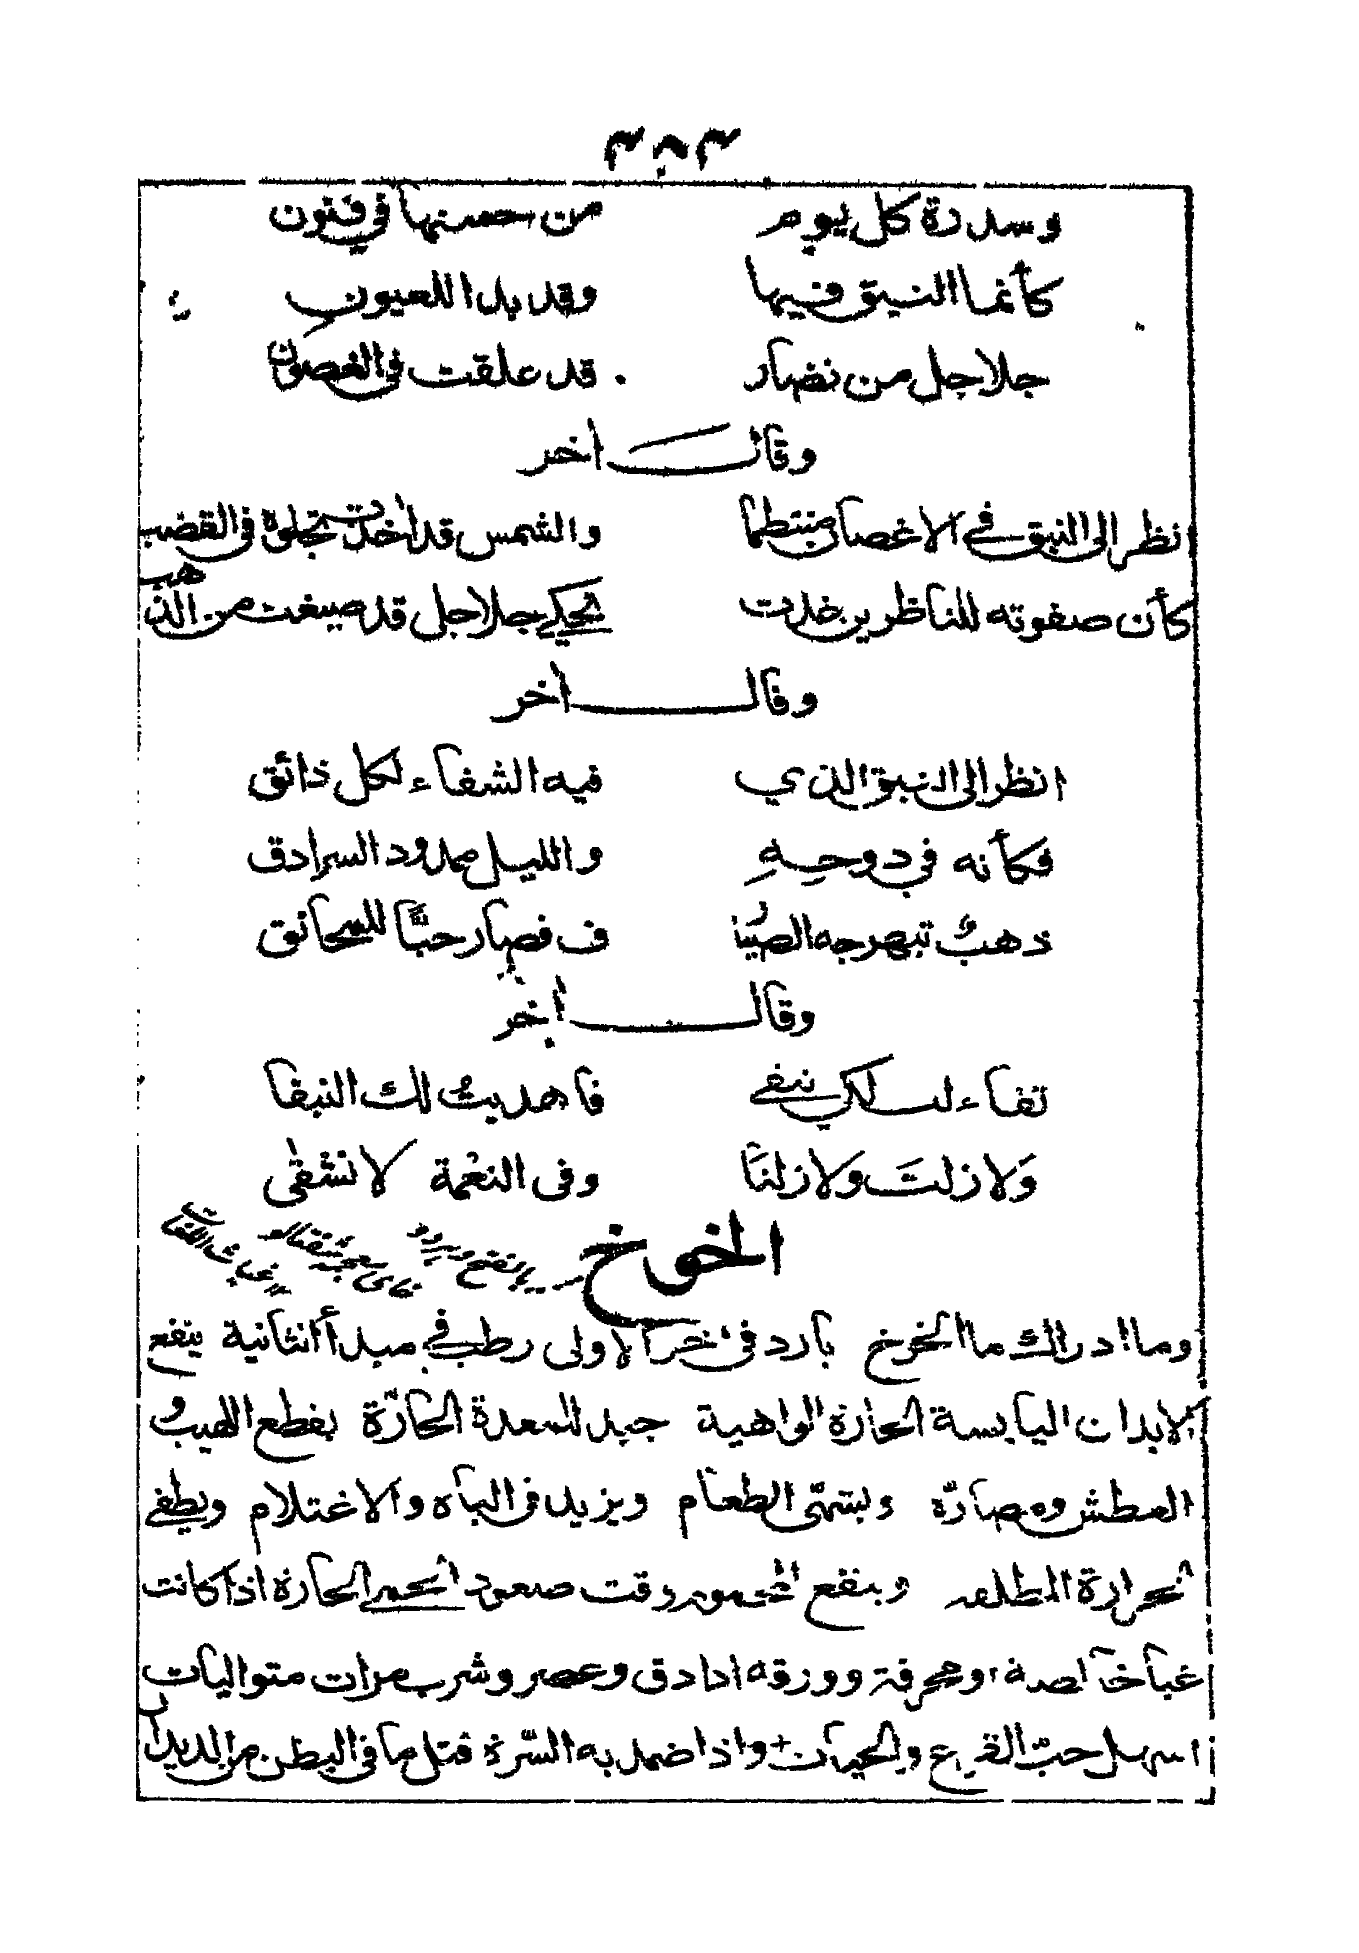 ٣٠٣
وسدرة كل يوم من حسنها في فنون
كأنما النبق فيها وقد بدا للعيون
جلاجل من نضار قد علقت في الغصون
وقال آخر
انظر الى النبق في الاغصان منتظما والشمس قد أخذت تجلوه في القضب
كأن صفوته للناظرين غدت تحكي جلاجل قد صيغت من الذهب
وقال آخر
انظر الى النبق الذي فيه الشفاء لكل ذائق
فكأنه في دوحهِ والليل ممدود السرادق
ذهبٌ تبهرجه الصيار ف فصار حبًّا للمخانق
وقال آخر
تفاءلت لكي نبقي فاهديتُ لك النبقا
وَلا زلتَ وَلا زلنَا وفى النعمة لا نشقى
الخوخ
وما ادراك ما الخوخ بارد في آخر الاولى رطب في مبدأ الثانية ينفع
الابدان اليابسة الحارة الواهية جيد للمعدة الحارّة يقطع اللهيب و
العطش ومضارّه ويشهّي الطعام ويزيد في الباه والاغتلام ويطفي
الحرارة وينفع وقت صعود الحارة اذا كانت
ووزقه اذا دق وعصر وشرب مرات متواليات
اسهل حبّ القرع والحيات واذا ضمد به السّرة قتل ما في البطن من الديدان